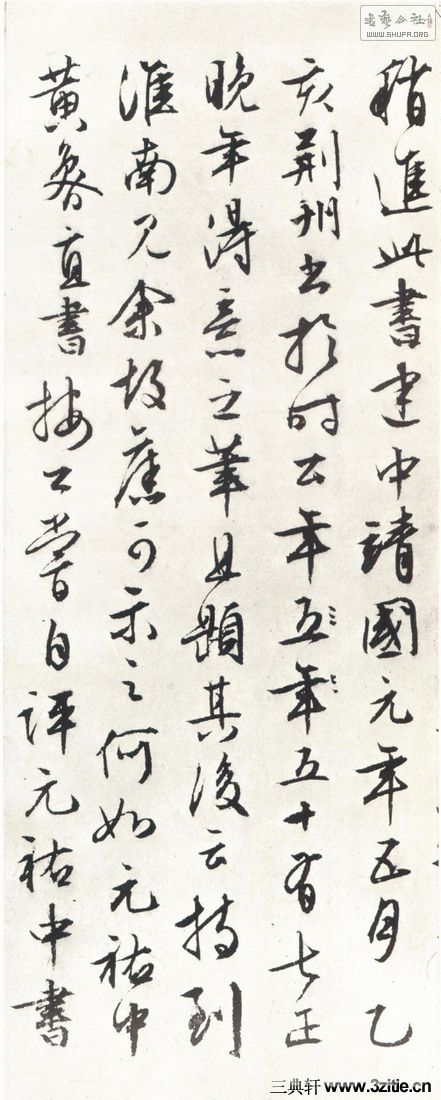 稍進此書建中靖國元年五月乙
亥荊州書於時公年五年五十有七正
晚年得意之筆且題其後云持到
淮南見余故舊可示之何如元祐中
黃魯直書按公嘗自評元祐中書
公社
WWW.SHUFA.ORG
三典轩 www.3zitie.cn